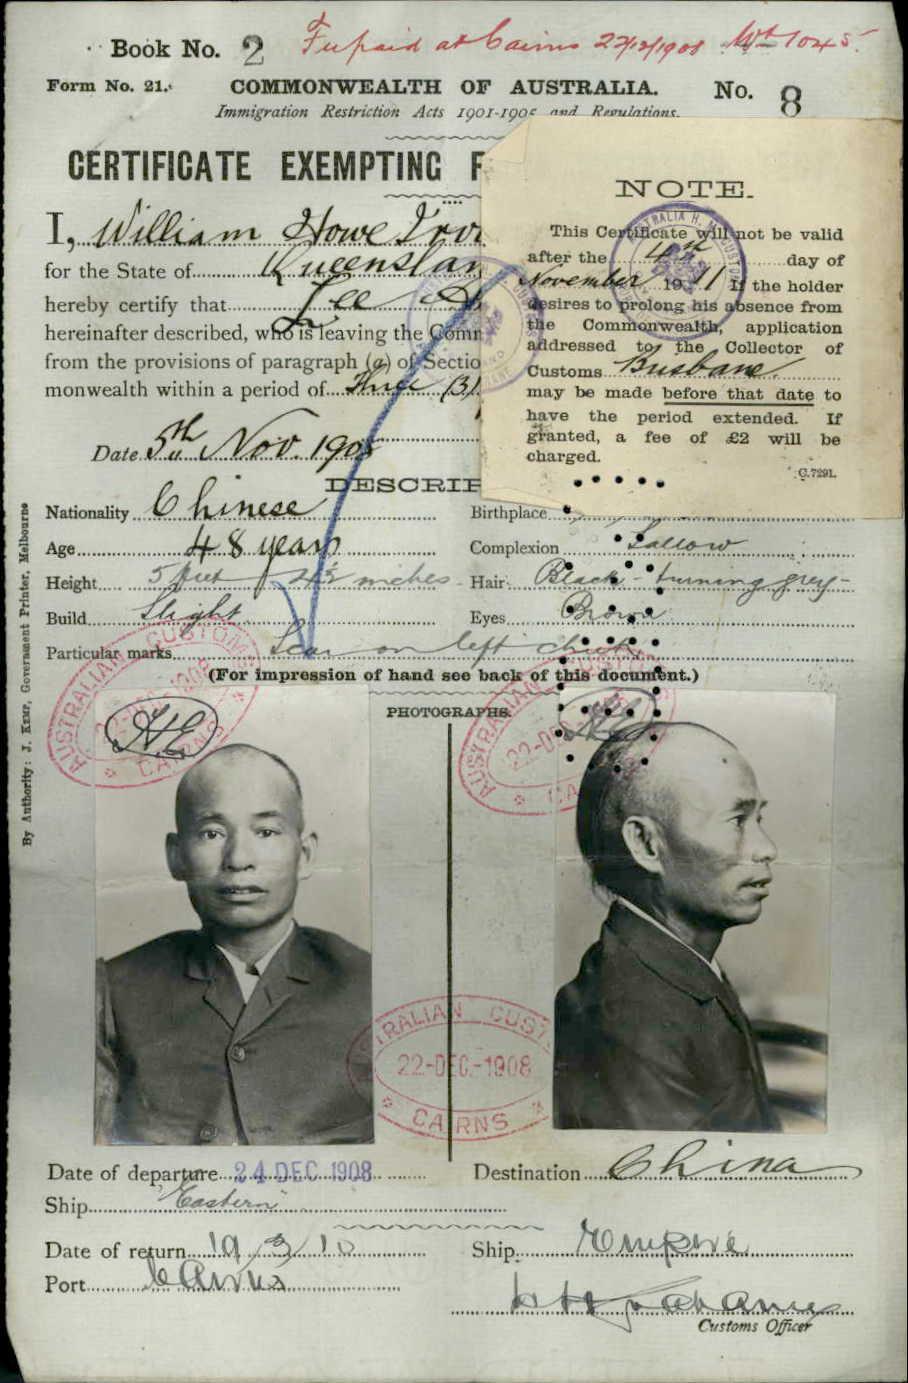 Book No. 2
Fee paid at Cairns 22/12/1908
Form No. 21.
COMMONWEALTH OF AUSTRALIA.
No. 8
Immigration Restriction Acts 1901-1905 and Regulations.
CERTIFICATE EXEMPTING F
I, William Howe Irv
for the State of Queenslan
hereby certify that Lee
hereinafter described, who is leaving the Comm
from the provisions of paragraph (a) of Sectio
monwealth within a period of three (3)
Date 5th Nov. 1908
NOTE.
This Certificate will not be valid
after the 4th day of
November 1911 If the holder
desires to prolong his absence from
the Commonwealth, application
addressed to the Collector of
Customs Brisbane
may be made before that date to
have the period extended. If
granted, a fee of £2 will be
charged.
C.7291.
DESCRIP
Nationality Chinese
Birthplace
Age 48 years
Complexion Sallow
Height 5 feet 4½ inches
Hair Black - turning grey -
Build Slight
Eyes Brown
Particular marks Scar on left cheek
(For impression of hand see back of this document.)
PHOTOGRAPHS.
By Authority: J. KEMP, Government Printer, Melbourne
AUSTRALIAN CUSTOMS
22-DEC-1908
CAIRNS
AUSTRALIAN
22-DEC
CA
TRALIAN CUST
22-DEC.-1908
CAIRNS
Date of departure 24 DEC 1908
Destination China
Ship "Eastern"
Date of return 19/3/10
Ship Empire
Port Cairns
Customs Officer